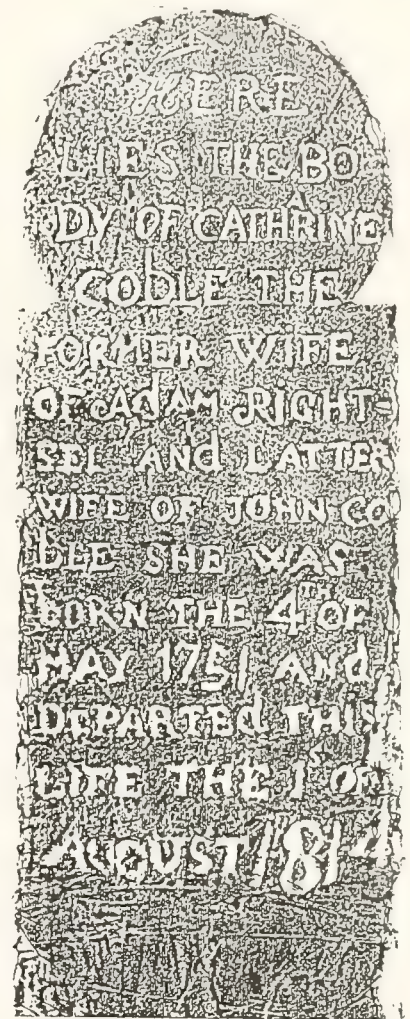 HERE
LIES THE BO
DY OF CATHRINE
COBLE THE
FORMER WIFE
OF AdAM RIGHT=
SEL ANd LATTER
WIFE OF JOHN CO
bLE SHE WAS
BORN THE 4TH OF
MAY 1751 ANd
DEPARTEd THIS
LIFE THE 1st OF
AUGUST 1814